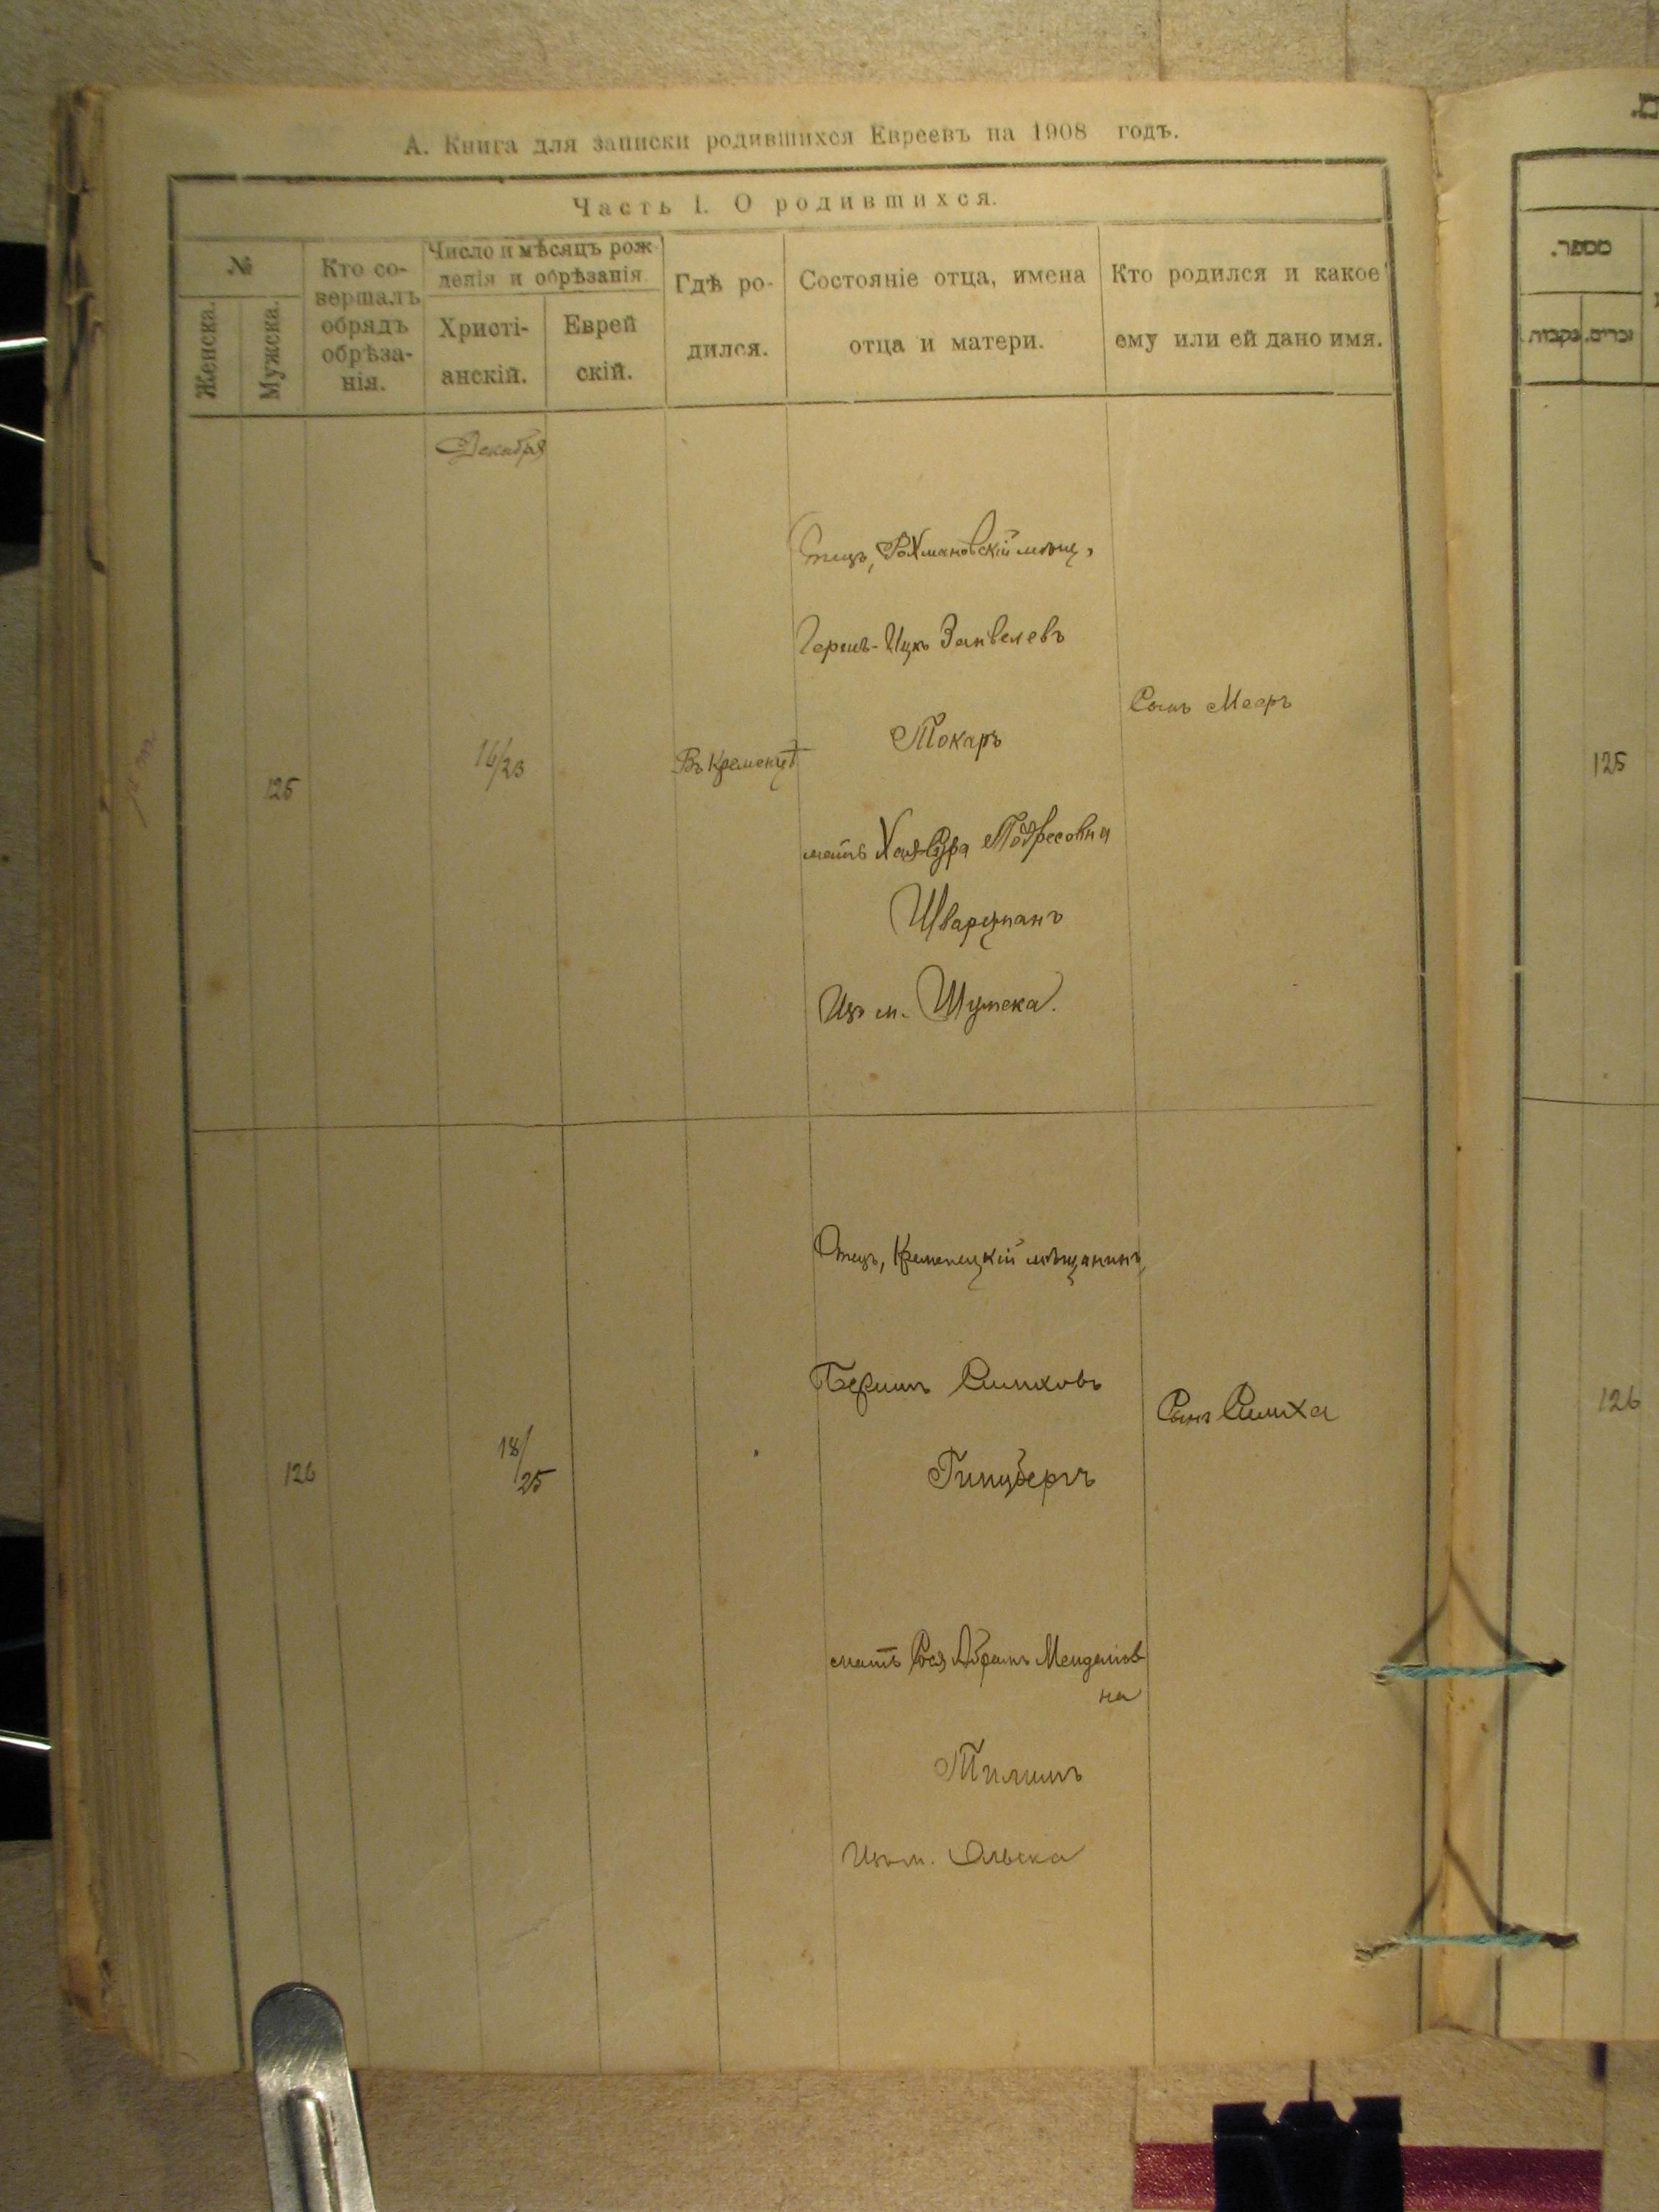 А. Книга для записки родившихся Евреевъ на 1908 годъ.
Часть I. О родившихся.
№
Женска.
Мужска.
Кто со-
вершалъ
обрядъ
обрѣза-
нія.
Число и мѣсяцъ рож
денія и обрѣзанія
Христі-
анскій.
Еврей
скій.
Гдѣ ро-
дился.
Состояніе отца, имена
отца и матери.
Кто родился и какое
ему или ей дано имя.
Декабря
125
16/23
Въ Кременцѣ
Отецъ, Рахмановскій мѣщ,
Герш-Ицк Занвелевъ
Токаръ
мать Хая Сура Тодресовна
Шварцманъ
Изъ м. Шумска.
Сынъ Мееръ
126
18/25
Отецъ, Кременецкій мѣщанинъ,
Симховъ
Гинцбергъ
мать Абрамъ
на
Изъ м.
Сынъ Симха
מספר.
זכרים.
נקבות
125
126